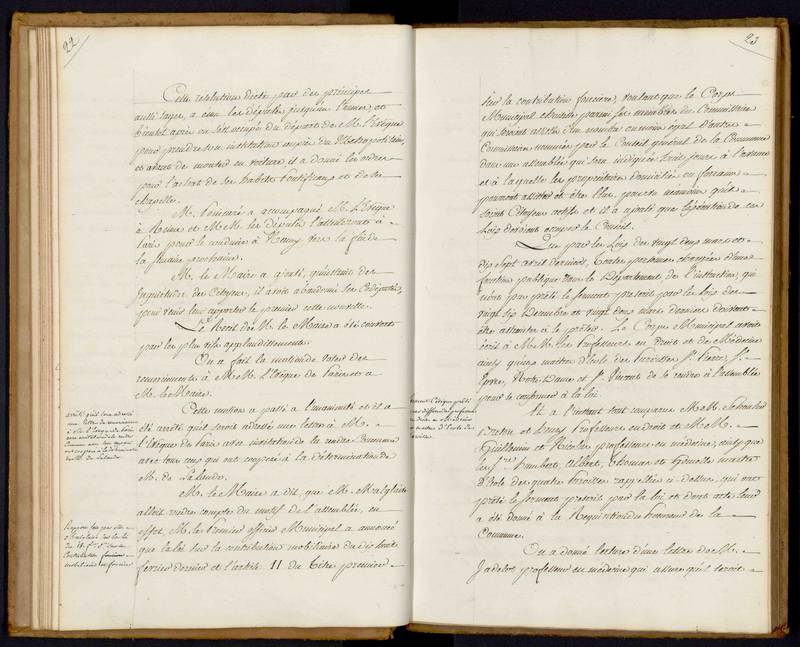 22
Cette resolution dictée par des principes
aussi sages, a émue les députés jusqu'aux larmes, et
bientôt après on s'est occupé du départ de M. L'Evêque
pour prendre son institution auprès du Metropolitain,
et avant de monter en voiture il a donné les ordres
pour l'achat de ses habits Pontificaux et de sa
chapelle.
M. a accompagné M. L'Evêque
à Reims et M.M. les députés l'attendront à
Paris pour le conduire à Nancy vers la fin de
la semaine prochaine.
M. le Maire a ajouté, qu'instruit des
inquiétudes des Citoyens, il avoit abandonné ses Codéputés,
pour venir leur apporter le premier cette nouvelle.
Le Recit de M. le Maire a été couvert
par les plus vifs applaudissements.
On a fait la motion de voter des
remerciments à M.M. L'Evêque de Paris et à
M. le Maire.
Cette motion a passé à l'unanimité et il a
été arrêté qu'il seroit adressé une lettre à M.
l'Evêque de Paris avec invitation de la rendre Commune
avec tous ceux qui ont coopéré à la détermination de
M. de Lalande.
M. le Maire a dit, que M.
alloit rendre compte du motif de l'assemblée, en
effet, M. le Premier officier Municipal a annoncé
que la loi sur la contribution mobiliaire du dix huit
fevrier dernier et l'article 11 du titre premier
arrêté qu'il sera adressé
une lettre de remerciments
à M. l'Evêque de Paris
avec invitation de rendre
Commune avec tous ceux qui
ont coopéré à la détermination
de M. de Lalande
Rapport fait par M.
sur les loi
du 18 f.er sur la
Contribution foncière
mobiliaire
23
sur la contribution foncière, voulant que le Corps
Municipal choisisse parmi ses membres des Commissaires
qui seront assistés d'un nombre au moins égal d'autres
Commissaires nommés par le Conseil général de la Commune
dans une assemblée qui sera indiquée huit jours à l'avance
et à laquelle les propriétaires domiciliés ou forains
pourront assister et être élus, pourvu néanmoins qu'ils
soient Citoyens actifs et il a ajouté que l'exécution de ces
Lois devoient occuper le Conseil.
Que par les Lois des vingt deux mars et
dix sept avril derniers, toutes personnes chargées d'une
fonction publique dans le Département de l'instruction, qui
n'ont pas prêté le serment prescrit par les lois des
vingt six Decembre et vingt deux mars derniers devroient
être astreintes à le prêter. Le Corps Municipal avoit
écrit à M.M. les Professeurs en Droit et de Médecine
ainsi qu'aux maîtres d'Ecole des Paroisses St. Pierre, St.
Epvre, Notre Dame et St. Vincent de se rendre à l'assemblée
pour se conformer à la loi.
Et à l'instant sont comparus M.M.
Breton et Professeurs en Droit et M.M.
Guillemin et Nicolas professeurs en médecine, ainsy que
les Srs. humbert, Albert, Thomas et maîtres
d'Ecole des quatre Paroisses rappellées ci-dessus, qui ont
prêté le serment prescrit par la loi et dont acte leur
a été donné à la Requisition du Procureur de la
Commune.
On a donné lecture d'une lettre de M.
Jadelot professeur en médecine qui assure qu'il seroit
Serment Civique prêté
par différents professeurs
en droit et Medecine
et maîtres d'Ecole des
paroisses